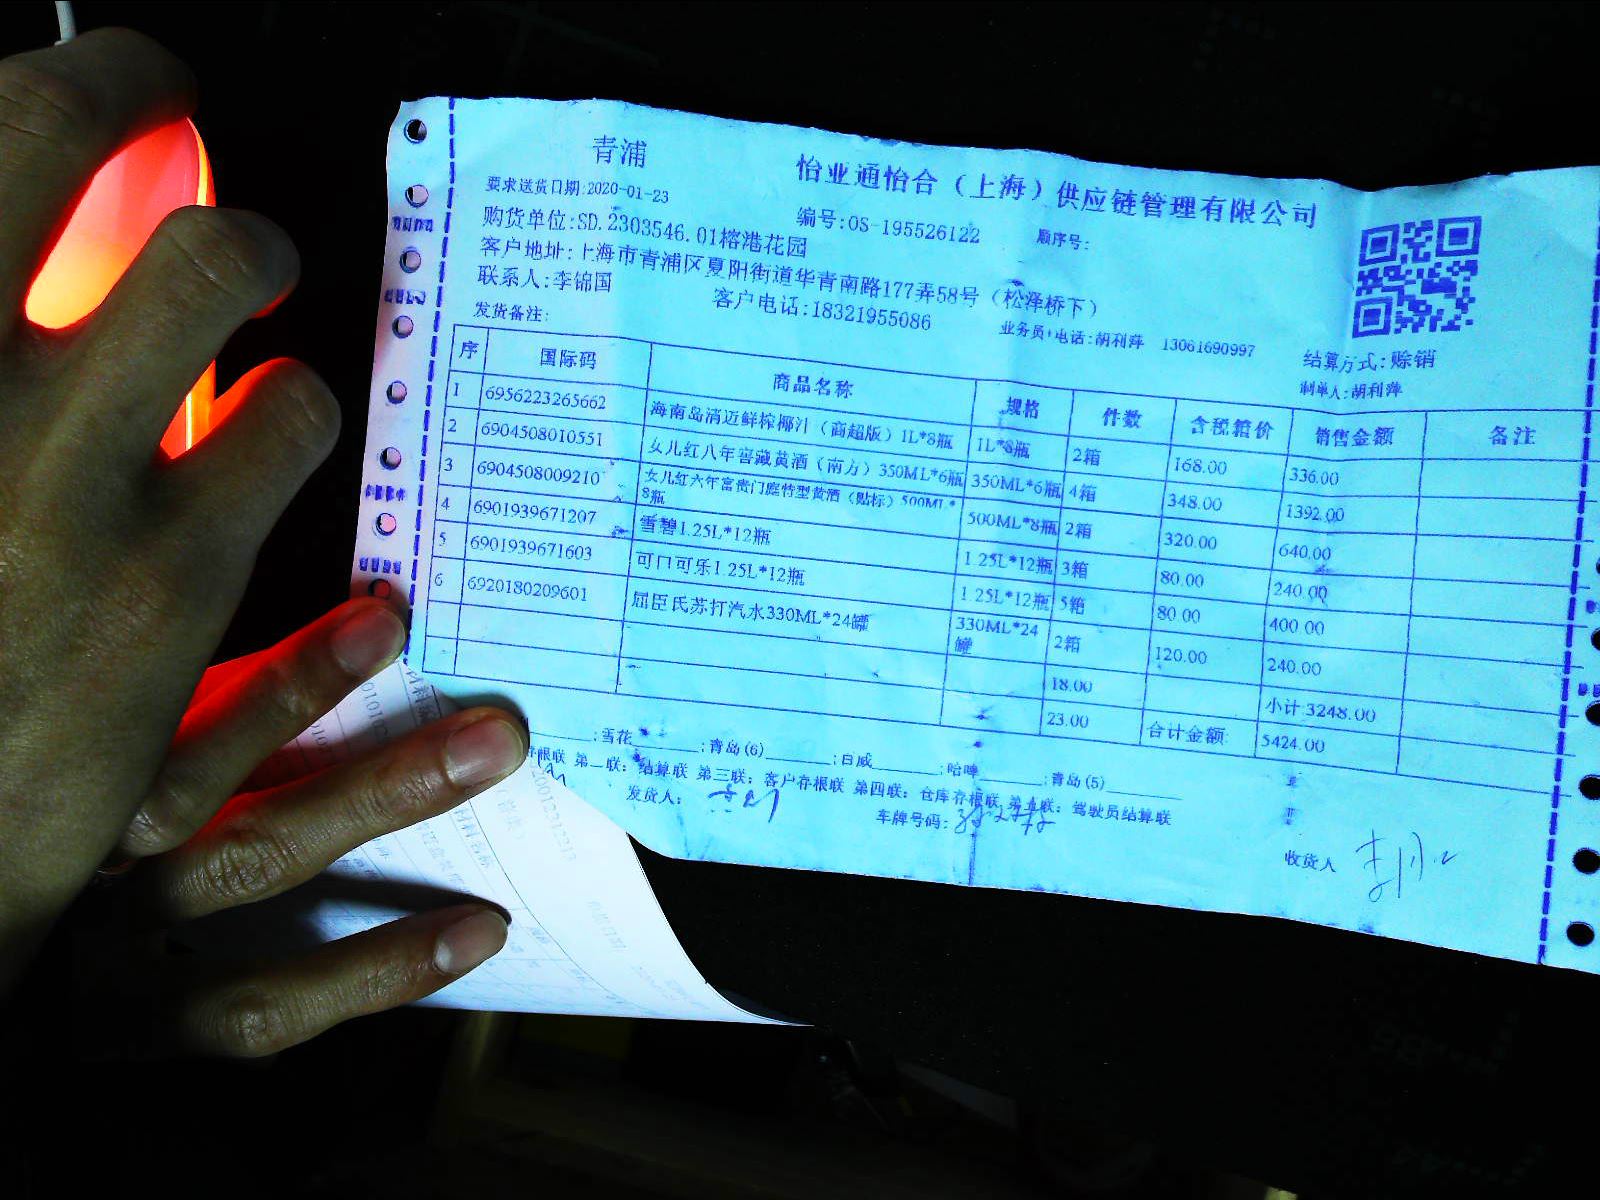 青浦
怡业通怡合（上海）供应链管理有限公司
要求送货日期:2020-01-23
编号:OS-195526122
顺序号:
购货单位:SD.2303546.01榕港花园
客户地址:上海市青浦区夏阳街道华青南路177弄58号（松泽桥下）
联系人:李锦国
客户电话:18321955086
业务员+电话:胡利萍 13061690997
结算方式:赊销
发货备注:
制单人:胡利萍
序 国际码 商品名称 规格 件数 含税箱价 销售金额 备注
1 6956223265662 海南岛消迈鲜榨椰汁（商超版）1L*8瓶 1L*8瓶 2箱 168.00 336.00
2 6904508010551 女儿红八年窖藏黄酒（南方）350ML*6瓶 350ML*6瓶 4箱 348.00 1392.00
3 6904508009210 女儿红六年富贵门庭特型黄酒（贴标）500ML*8瓶 500ML*8瓶 2箱 320.00 640.00
4 6901939671207 雪碧1.25L*12瓶 1.25L*12瓶 3箱 80.00 240.00
5 6901939671603 可口可乐1.25L*12瓶 1.25L*12瓶 5箱 80.00 400.00
6 6920180209601 屈臣氏苏打汽水330ML*24罐 330ML*24罐 2箱 120.00 240.00
18.00 小计:3248.00
23.00 合计金额: 5424.00
;雪花 ;青岛(6) ;百威 ;哈啤 ;青岛(5)
存根联 第二联: 结算联 第三联: 客户存根联 第四联: 仓库存根联 第五联: 驾驶员结算联
发货人:
车牌号码:
收货人